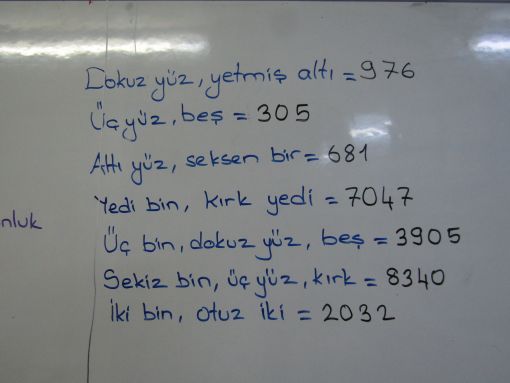 Dokuz yüz, yetmiş altı = 976
Üç yüz, beş = 305
Altı yüz, seksen bir = 681
Yedi bin, kırk yedi = 7047
nluk
Üç bin, dokuz yüz, beş = 3905
Sekiz bin, üç yüz, kırk = 8340
İki bin, otuz iki = 2032